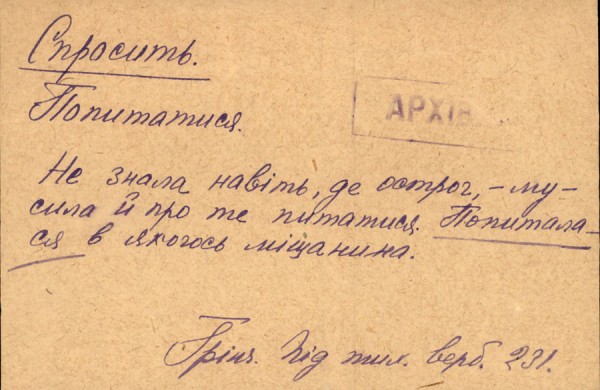 Спросить.
Попитатися.
АРХІВ
Не знала навіть, де острог, – му-
сила й про те питатися. Попитала-
ся в якогось міщанина.
Грінч. Під тих. верб. 231.